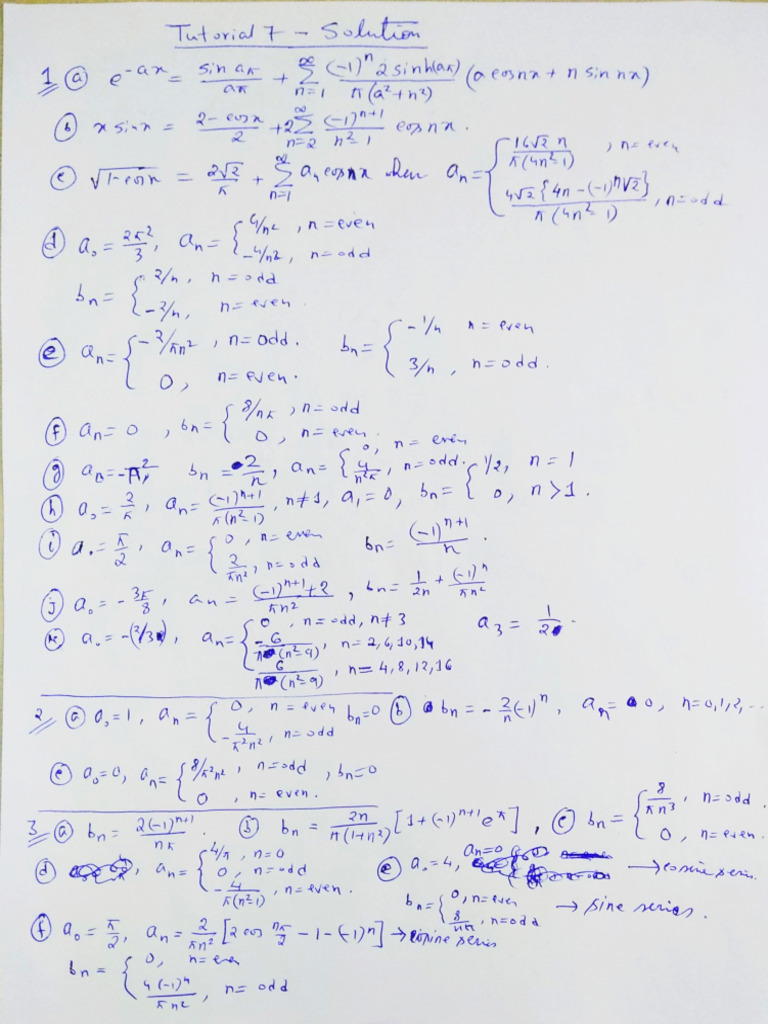 Tutorial 7 - Solution
1. (a) e^{-ax} = \frac{sin aπ}{aπ} + \sum_{n=1}^{∞} \frac{(-1)^n 2 sinh(aπ)}{π(a²+n²)} (a cosnx + n sin nx)
(b) x sinx = \frac{2-cosx}{2} + 2\sum_{n=2}^{∞} \frac{(-1)^{n+1}}{n²-1} cosnx.
(c) \sqrt{1-cosx} = \frac{2√2}{π} + \sum_{n=1}^{∞} a_n cosnx when a_n = { \frac{16√2 n}{π(4n²-1)}, n=even
\frac{4√2{4n-(-1)^n√2}}{π(4n²-1)}, n=odd
(d) a₀ = \frac{2π²}{3}, a_n = { 4/n², n=even
-4/n², n=odd
b_n = { 2/n, n=odd
-2/n, n=even.
(e) a_n = { -2/πn², n=odd. b_n = { -1/n n=even
0, n=even. 3/n, n=odd.
(f) a_n = 0, b_n = { 8/nπ, n=odd
0, n=even.
(g) -π/2, b_n = \frac{2}{n}, a_n = { 0, n=even
\frac{4}{n²π}, n=odd.
(h) a₀ = \frac{2}{π}, a_n = \frac{(-1)^{n+1}}{π(n²-1)}, n≠1, a₁=0, b_n = { 1/2, n=1
0, n>1.
(i) a₀ = \frac{π}{2}, a_n = { 0, n=even b_n = \frac{(-1)^{n+1}}{n}.
\frac{2}{πn²}, n=odd
(j) a₀ = -\frac{3π}{8}, a_n = \frac{(-1)^{n+1}+2}{πn²}, b_n = \frac{1}{2n} + \frac{(-1)^n}{πn²}
(k) a₀ = -(2/3), a_n = { 0, n=odd, n≠3 a₃ = \frac{1}{2}.
\frac{-6}{π(n²-9)}, n=2,6,10,14
\frac{6}{π(n²-9)}, n=4,8,12,16
2. (a) a₀=1, a_n = { 0, n=even b_n=0 (b) b_n = -\frac{2}{n}(-1)^n, a_n = 0, n=0,1,2,...
-\frac{4}{π²n²}, n=odd
(c) a₀=0, a_n = { 8/π²n², n=odd, b_n=0
0, n=even.
3. (a) b_n = \frac{2(-1)^{n+1}}{nπ}. (b) b_n = \frac{2n}{π(1+n²)} [1+(-1)^{n+1}e^π], (c) b_n = { \frac{8}{πn³}, n=odd.
0, n=even.
(d) a_n = { 4/π, n=0 (e) a₀=4, a_n=0 → cosine series.
0, n=odd
-\frac{4}{π(n²-1)}, n=even.
b_n = { 0, n=even → sine series.
\frac{8}{nπ}, n=odd
(f) a₀ = \frac{π}{2}, a_n = \frac{2}{πn²} [2cos\frac{nπ}{2} - 1 - (-1)^n] → cosine series
b_n = { 0, n=even
\frac{4(-1)^n}{πn²}, n=odd